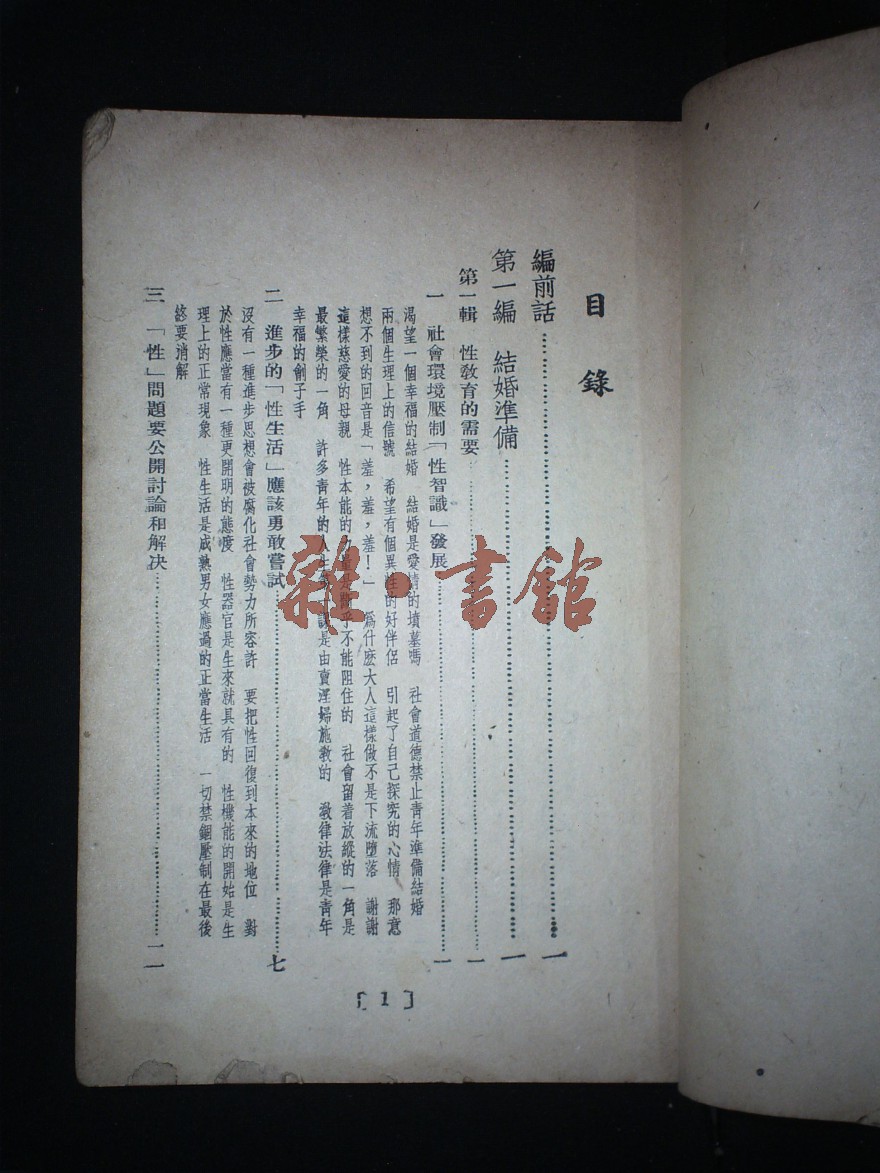 目錄
編前話……一
第一編 結婚準備……一
第一輯 性教育的需要……一
一 社會環境壓制「性智識」發展……一
渴望一個幸福的結婚 結婚是愛情的墳墓嗎 社會道德禁止靑年準備結婚
兩個生理上的信號 希望有個異性的好伴侶 引起了自己探究的心情 那意
想不到的回音是「羞，羞，羞！」 爲什麽大人這樣做不是下流墮落 謝謝
這樣慈愛的母親 性本能的力量是斷乎不能阻住的 社會留着放縱的一角是
最繁榮的一角 許多靑年的人生第一課是由賣淫婦施敎的 敎律法律是靑年
幸福的劊子手
二 進步的「性生活」應該勇敢嘗試……七
沒有一種進步思想會被腐化社會勢力所容許 要把性回復到本來的地位 對
於性應當有一種更開明的態度 性器官是生來就具有的 性機能的開始是生
理上的正常現象 性生活是成熟男女應過的正當生活 一切禁錮壓制在最後
終要消解
三 「性」問題要公開討論和解决……一一
[1]
雜·書館